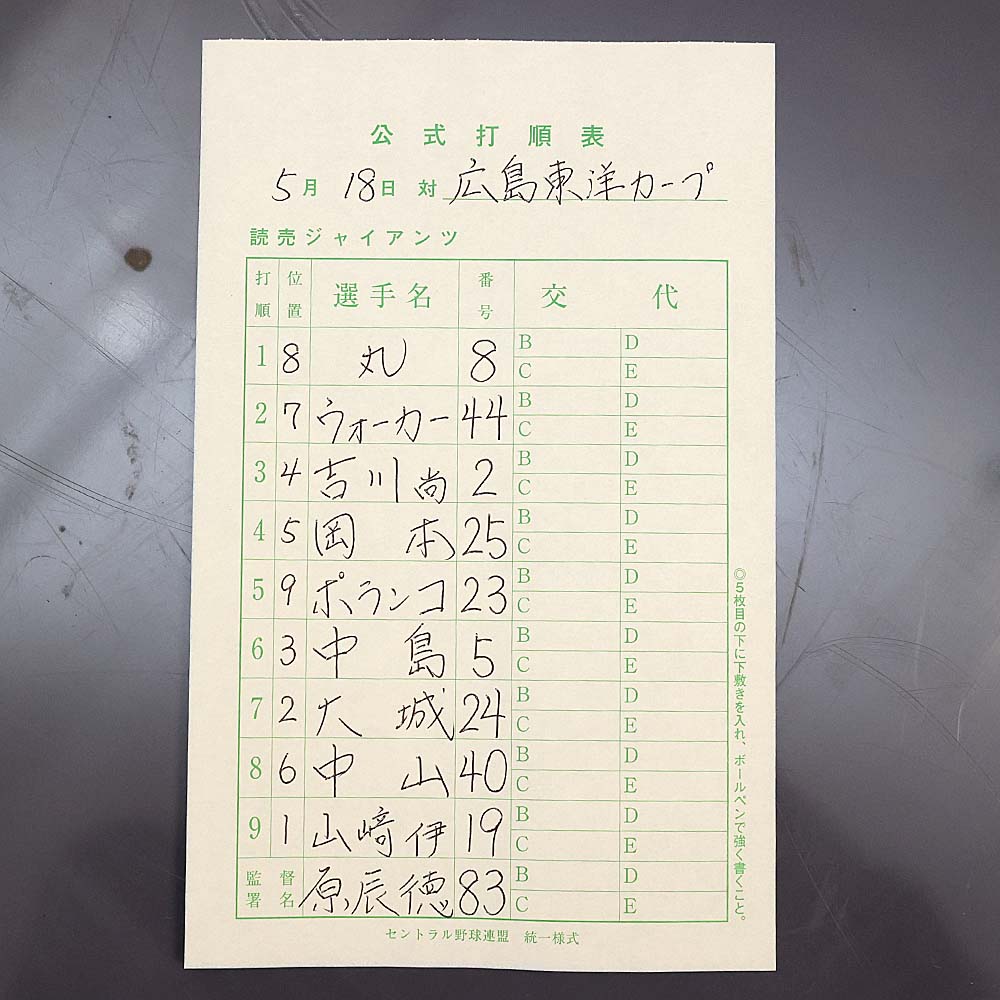 公式打順表
5月 18日 対 広島東洋カープ
読売ジャイアンツ
打順 位置 選手名 番号 交代
1 8 丸 8 B D C E
2 7 ウォーカー 44 B D C E
3 4 吉川尚 2 B D C E
4 5 岡本 25 B D C E
5 9 ポランコ 23 B D C E
6 3 中島 5 B D C E
7 2 大城 24 B D C E
8 6 中山 40 B D C E
9 1 山﨑伊 19 B D C E
監督署名 原辰徳 83 B D C E
セントラル野球連盟 統一様式
◎5枚目の下に下敷きを入れ、ボールペンで強く書くこと。